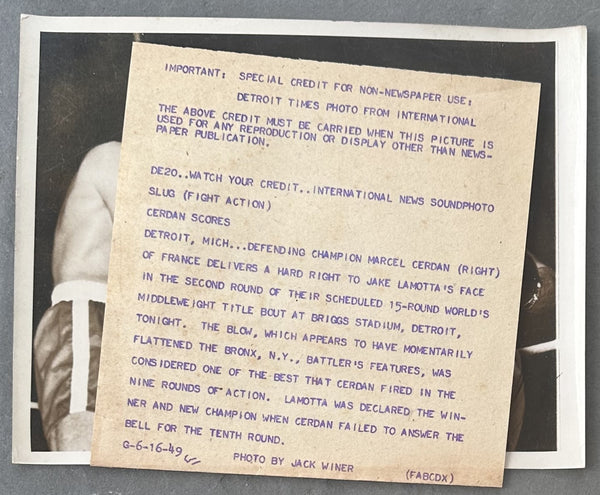 IMPORTANT: SPECIAL CREDIT FOR NON-NEWSPAPER USE:
DETROIT TIMES PHOTO FROM INTERNATIONAL
THE ABOVE CREDIT MUST BE CARRIED WHEN THIS PICTURE IS
USED FOR ANY REPRODUCTION OR DISPLAY OTHER THAN NEWS-
PAPER PUBLICATION.
DE20..WATCH YOUR CREDIT..INTERNATIONAL NEWS SOUNDPHOTO
SLUG (FIGHT ACTION)
CERDAN SCORES
DETROIT, MICH...DEFENDING CHAMPION MARCEL CERDAN (RIGHT)
OF FRANCE DELIVERS A HARD RIGHT TO JAKE LAMOTTA'S FACE
IN THE SECOND ROUND OF THEIR SCHEDULED 15-ROUND WORLD'S
MIDDLEWEIGHT TITLE BOUT AT BRIGGS STADIUM, DETROIT,
TONIGHT. THE BLOW, WHICH APPEARS TO HAVE MOMENTARILY
FLATTENED THE BRONX, N.Y., BATTLER'S FEATURES, WAS
CONSIDERED ONE OF THE BEST THAT CERDAN FIRED IN THE
NINE ROUNDS OF ACTION. LAMOTTA WAS DECLARED THE WIN-
NER AND NEW CHAMPION WHEN CERDAN FAILED TO ANSWER THE
BELL FOR THE TENTH ROUND.
G-6-16-49 PHOTO BY JACK WINER (FABCDX)